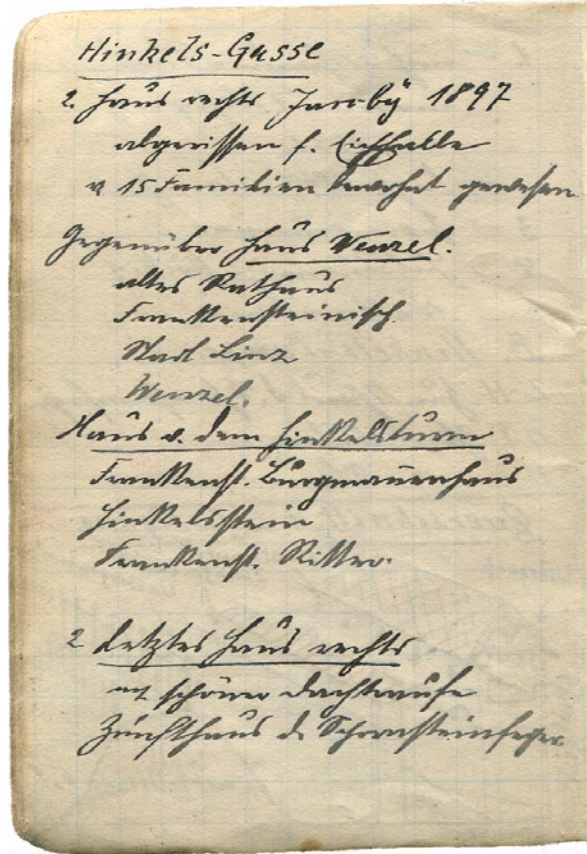 Hinkels-Gasse
2. Haus rechts Jacoby 1897
abgerissen f. Eichhalle
v 15 Familien bewohnt gewesen
Gegenüber Haus Wenzel.
altes Rathaus
Frankensteinisch
Stadt Linz
Wenzel.
Haus v. dem Hinkelsturm
Frankenst. Burgmannenhaus
Hinkelsstein
Frankenst. Ritter.
2 letztes Haus rechts
mt schöner Dachtraufe
Zunfthaus d. Schornsteinfeger